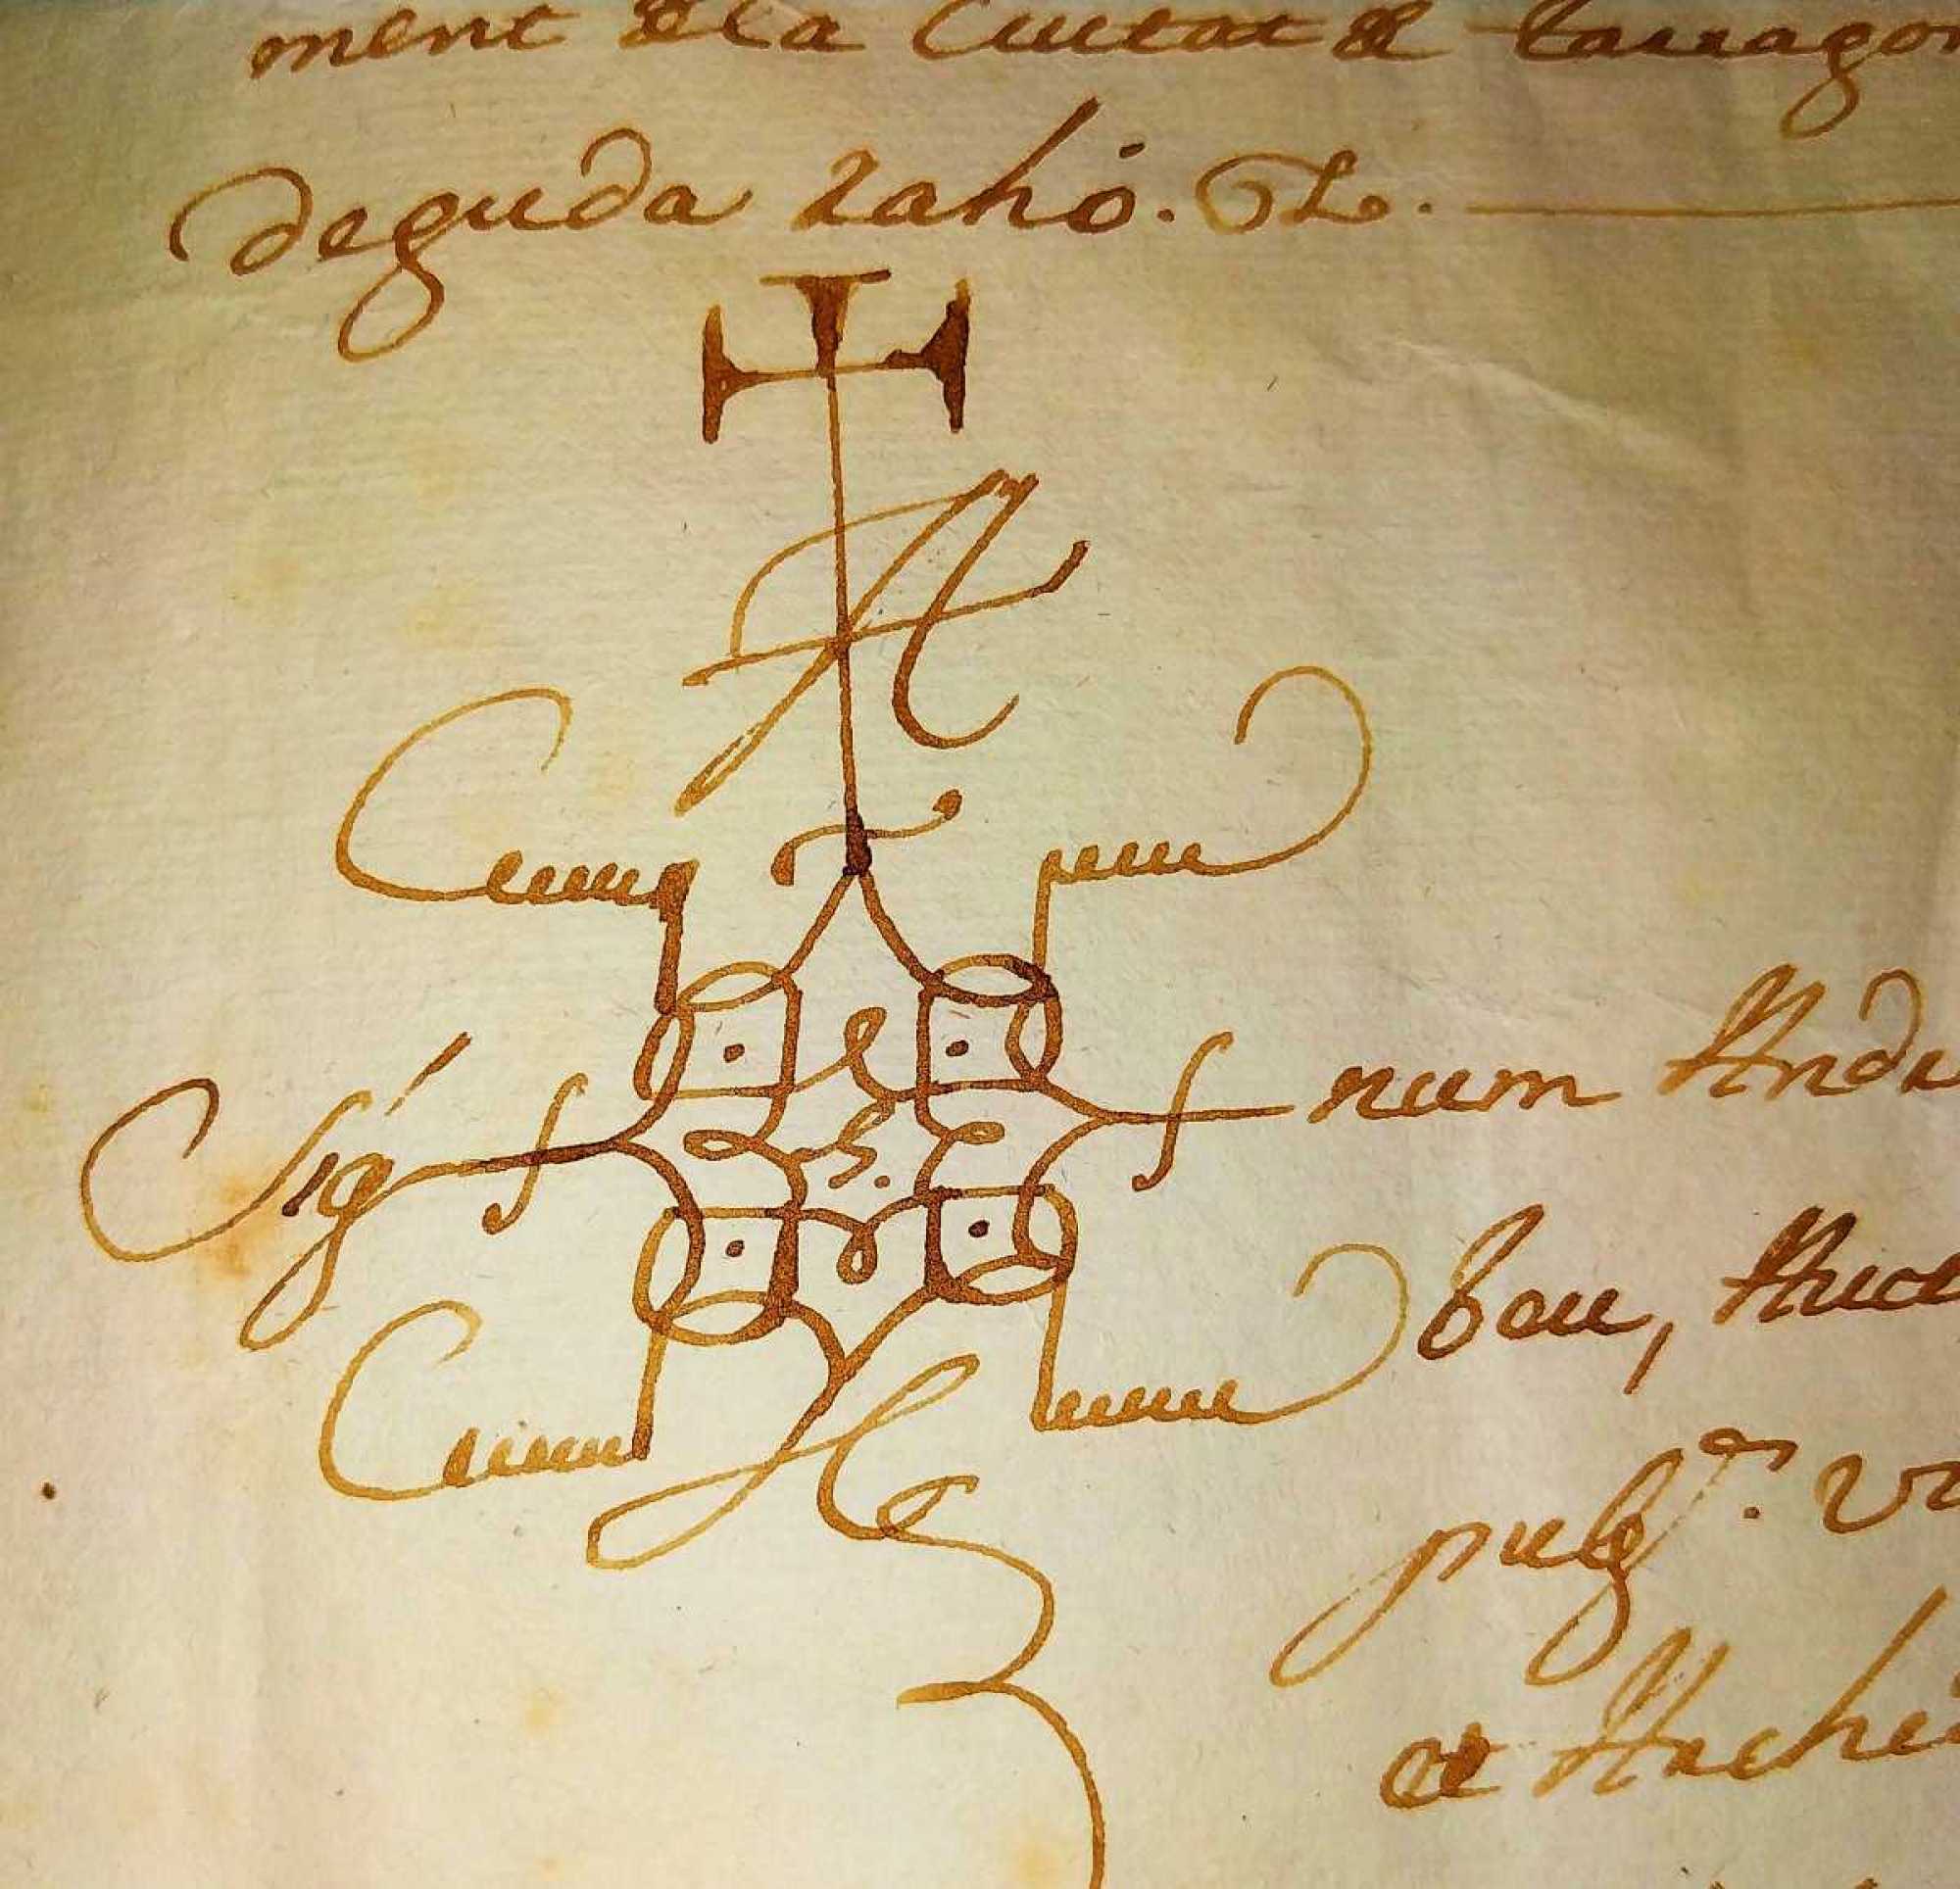 ment de la Ciutat de Tarragon
deguda rahó. &.
A
Sig num Andr
bou, Auct
pub
et Archi